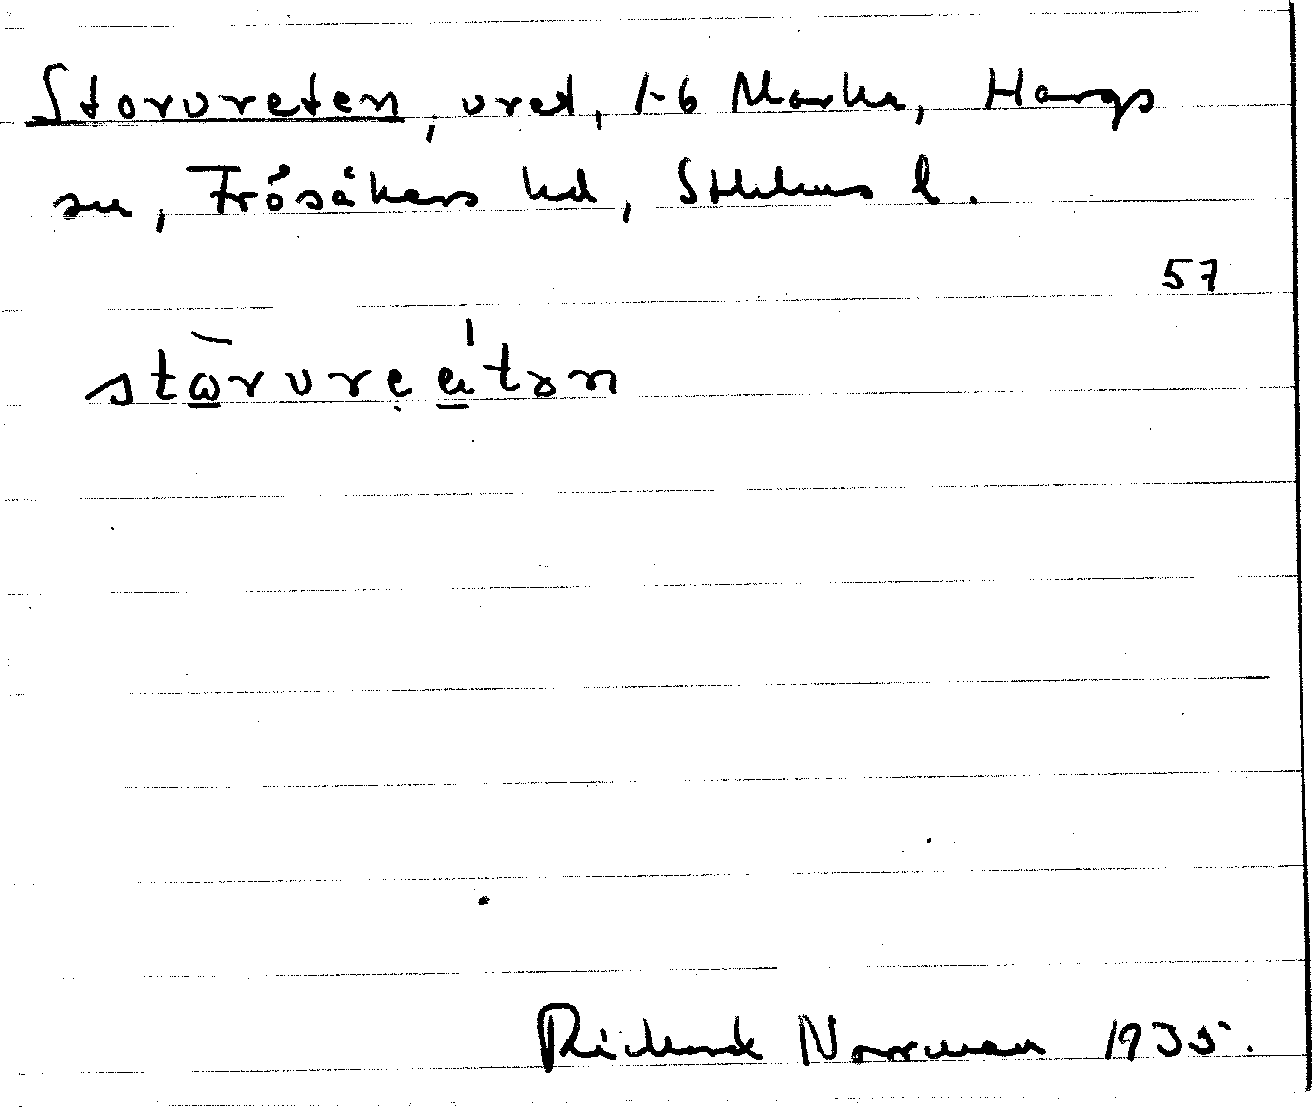 Storvreten, vret, 1-6 Marka, Hargs
sn, Frösåkers hd, Sthlms l.
57
stὼrvrẹátən
Richard Norrman 1935.